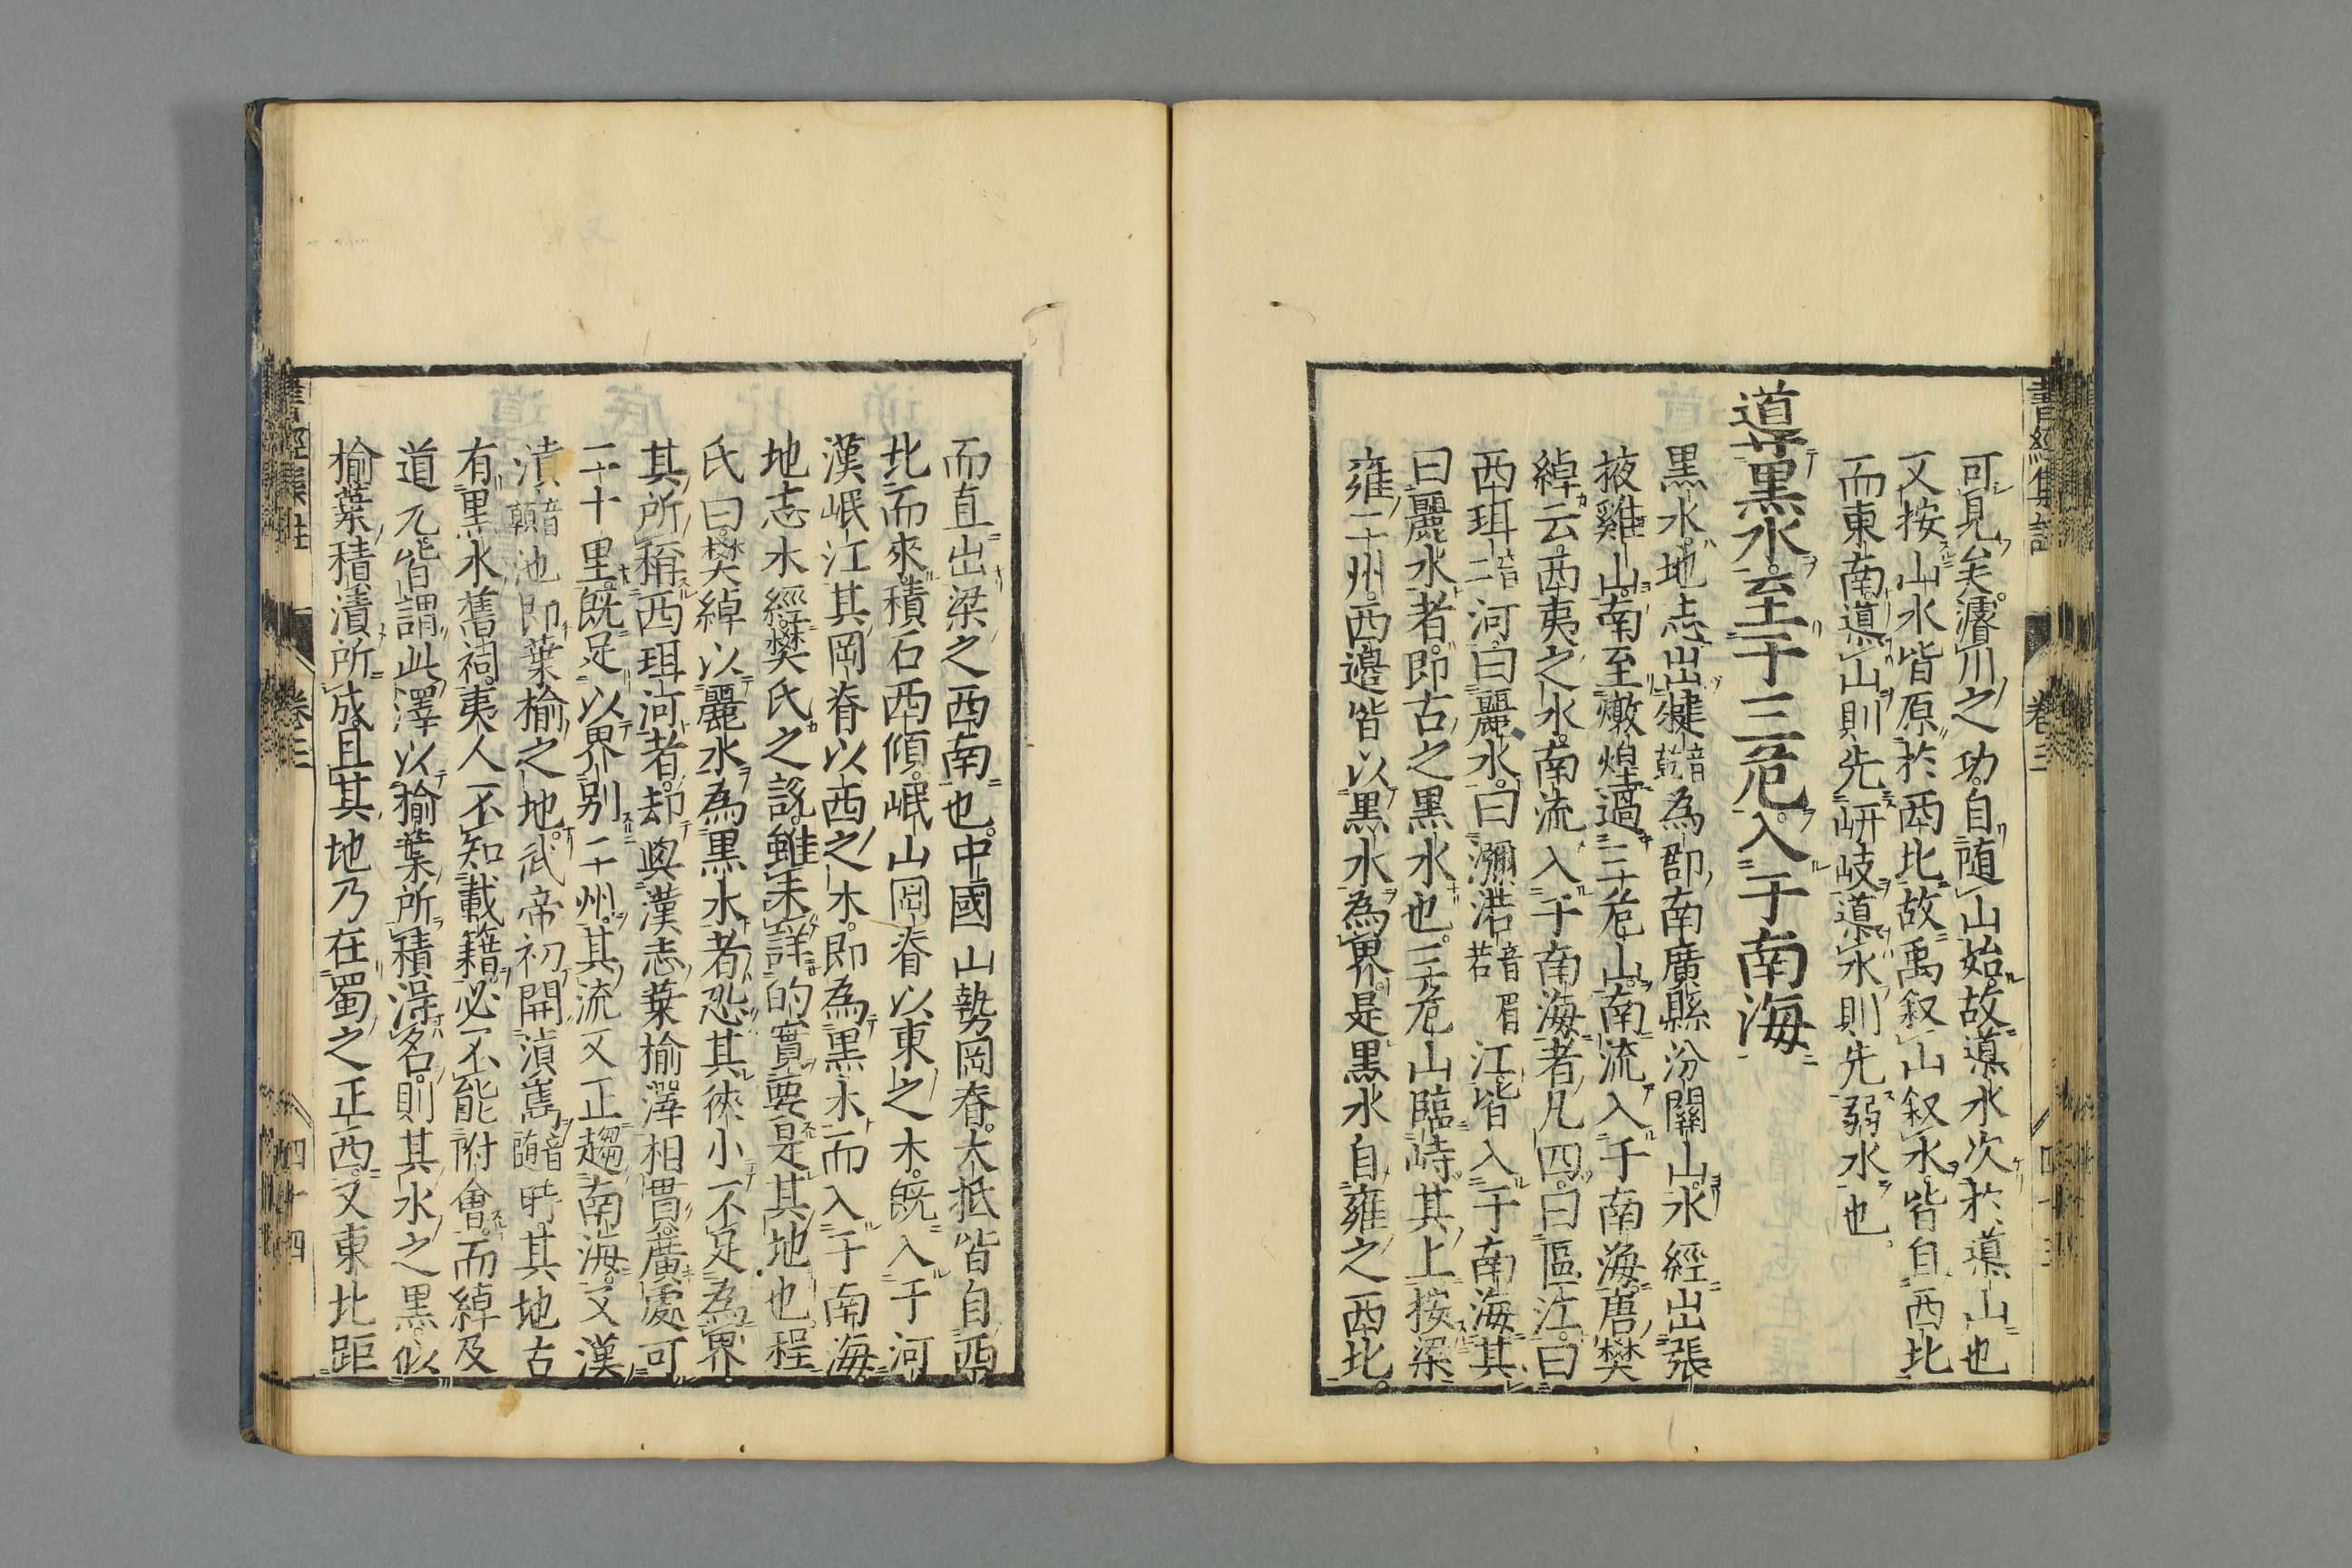 書經集註 卷三 四十三
可見矣濬川之功自随山始故導水次於導山也
又按山水皆原於西北故禹叙山叙水皆自西北
而東南導山則先岍岐導水則先弱水也
導黒水至于三危入于南海
黒水地志出犍音乾為郡南廣縣汾關山水經出張
掖雞山南至燉煌過三危山南流入于南海唐樊
綽云西夷之水南流入于南海者凡四曰區江曰
西珥音二河曰麗水曰瀰渃音眉若江皆入于南海其
曰麗水者即古之黒水也三危山臨峙其上按梁
雍二州西邉皆以黒水為界是黒水自雍之西北
而直出梁之西南也中國山勢岡脊大抵皆自西
北而來積石西傾岷山岡脊以東之水既入于河
漢岷江其岡脊以西之水即為黒水而入于南海
地志水經樊氏之說雖未詳的實要是其地也程
氏曰樊綽以麗水為黒水者恐其狹小不足為界
其所稱西珥河者却與漢志葉榆澤相貫廣處可
二十里既足以界别二州其流又正趨南海又漢
滇音顛池即葉榆之地武帝初開滇嶲音随時其地古
有黒水舊祠夷人不知載籍必不能附會而綽及
道元皆謂此澤以榆葉所積得名則其水之黒似
榆葉積漬所成且其地乃在蜀之正西又東北距
書經集註 卷三 四十四